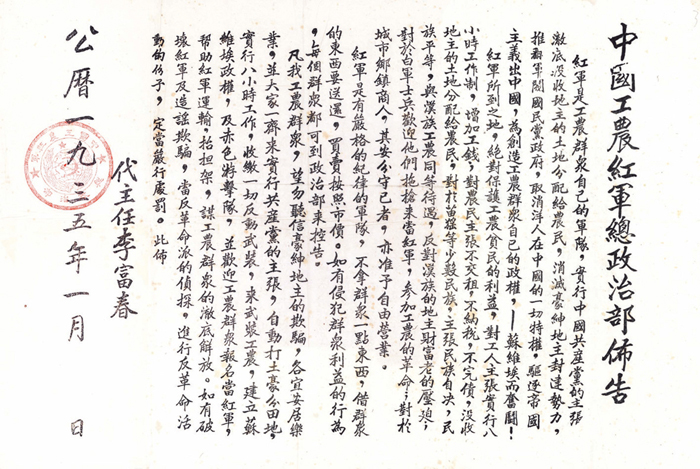 中國工農紅軍總政治部佈告
紅軍是工農群眾自己的軍隊，實行中國共產黨的主張
澈底没收地主的土地分配給農民，消滅豪紳地主封建勢力，
推翻軍閥國民黨政府，取消洋人在中國的一切特權，驅逐帝國
主義出中國，為創造工農群眾自己的政權，——蘇維埃而奮鬪！
紅軍所到之地，絕對保護工農貧民的利益，對工人主張實行八
小時工作制，增加工錢；對農民主張不交租，不納稅，不完債，没收
地主的土地分配給農民，對於苗猺等少數民族，主張民族自决，民
族平等，與漢族工農同等待遇，反對漢族的地主財富老的壓迫；
對於白軍士兵歡迎他們拖槍來當紅軍，參加工農的革命；對於
城市鄉鎮商人，其安分守己者，亦准予自由營業。
紅軍是有嚴格的紀律的軍隊，不拿群眾一點東西，借群眾
的東西要送還，買賣按照市價。如有侵犯群眾利益的行為
，每個群眾都可到政治部來控告。
凡我工農群眾，望勿聽信豪紳地主的欺騙，各宜安居樂
業，並大家一齊來實行共產黨的主張，自動打土豪分田地，
實行八小時工作，收繳一切反動武裝，來武裝工農，建立蘇
維埃政權，及赤色游擊隊，並歡迎工農群眾報名當紅軍，
帮助紅軍運輸，抬担架，謀工農群眾的澈底解放。如有破
壞紅軍及造謠欺騙，當反革命派的偵探，進行反革命活
動的份子，定當嚴行處罰。此佈
代主任李富春
公曆一九三五年一月 日